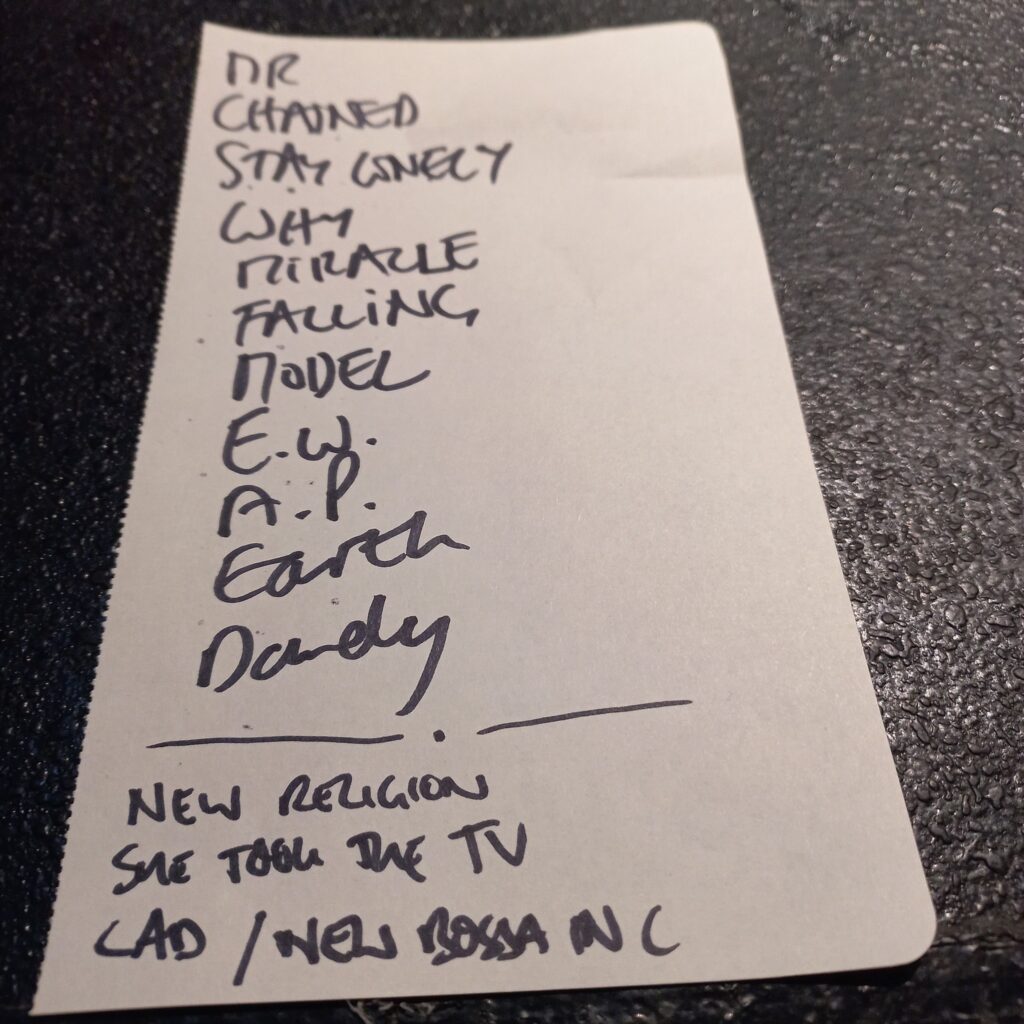 MR
CHAINED
STAY LONELY
WHY
MIRACLE
FALLING
MODEL
E.W.
A.P.
Earth
Dandy
NEW RELIGION
SHE TOOK THE TV
CAD / NEW BOSSA IN C